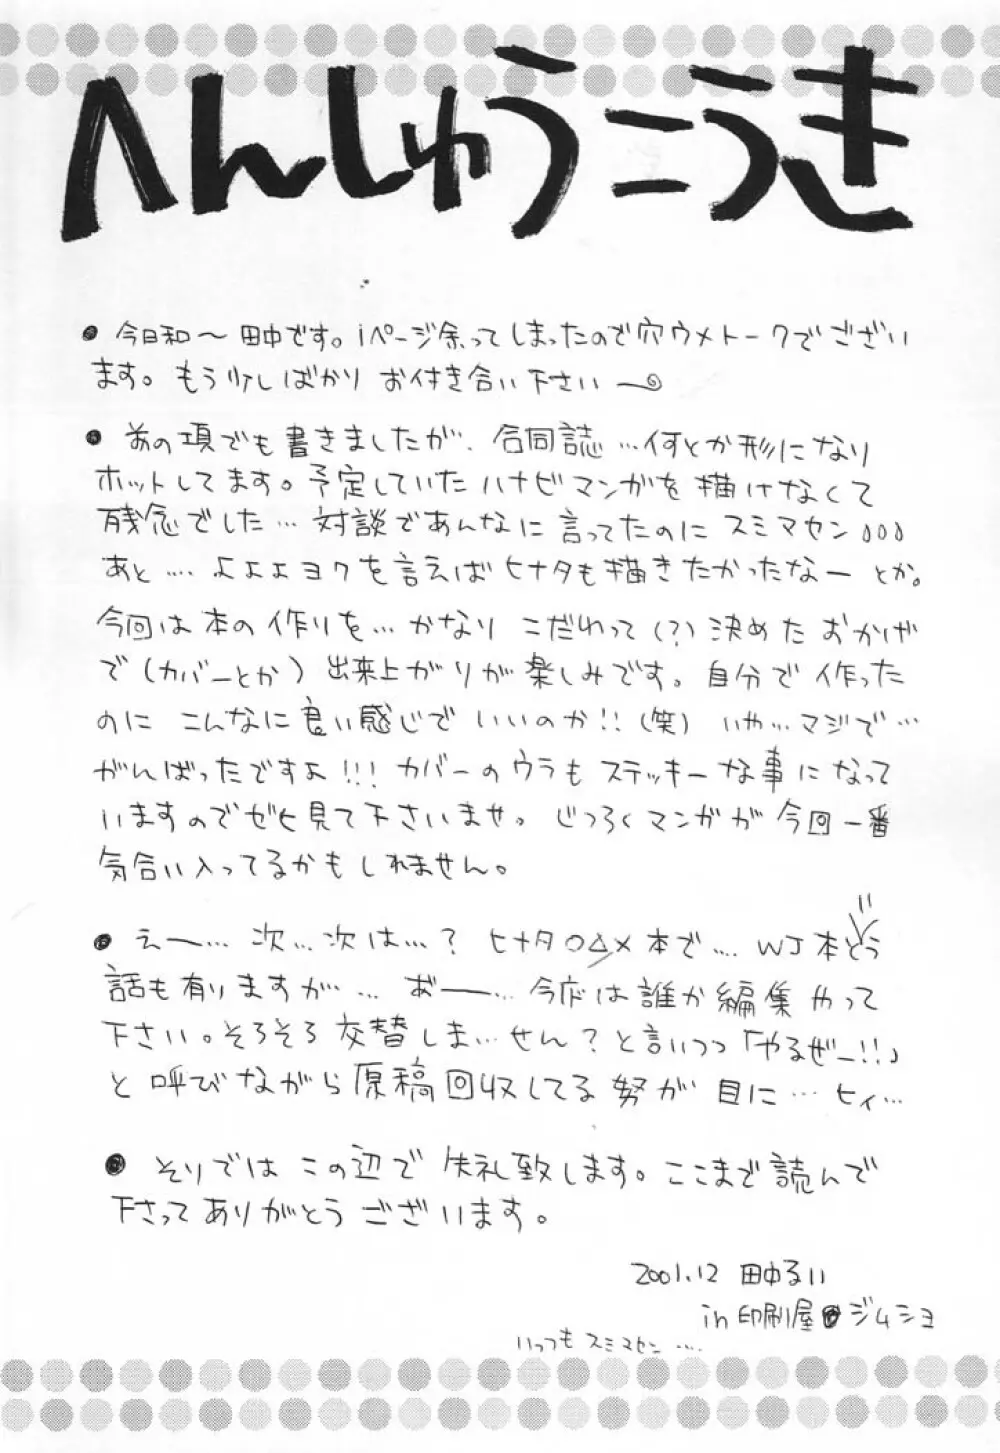 へんしゅうこうき
● 今日和〜田中です。1ページ余ってしまったので穴ウメトークでござい
ます。もう少しばかりお付き合い下さい〜
● あの項でも書きましたが、合同誌…何とか形になり
ホットしてます。予定していたハナビマンガを描けなくて
残念でした…対談であんなに言ってたのにスミマセン。。。
あと…、よょょヨクを言えばヒナタも描きたかったなーとか。
今回は本の作りを…かなりこだわって(?)決めたおかげ
で(カバーとか)出来上がりが楽しみです。自分で作った
のにこんなに良い感じでいいのか!!(笑)いや…マジで…
がんばったですよ!!!カバーのウラもステッキーな事になって
いますのでゼヒ見て下さいませ。じつろくマンガが今回一番
気合い入ってるかもしれません。
● えー…次…次は…?ヒナタ○△×本で…WJ本どう
話も有りますが…おー…今度は誰か編集やって
下さい。そろそろ交替しま…せん?と言いつつ「やるぜー!!」
と呼びながら原稿回収してる努が目に…ヒィ…
● そりではこの辺で失礼致します。ここまで読んで
下さってありがとうございます。
2001.12 田中るい
in印刷屋●ジムショ
いっつもスミマセン…